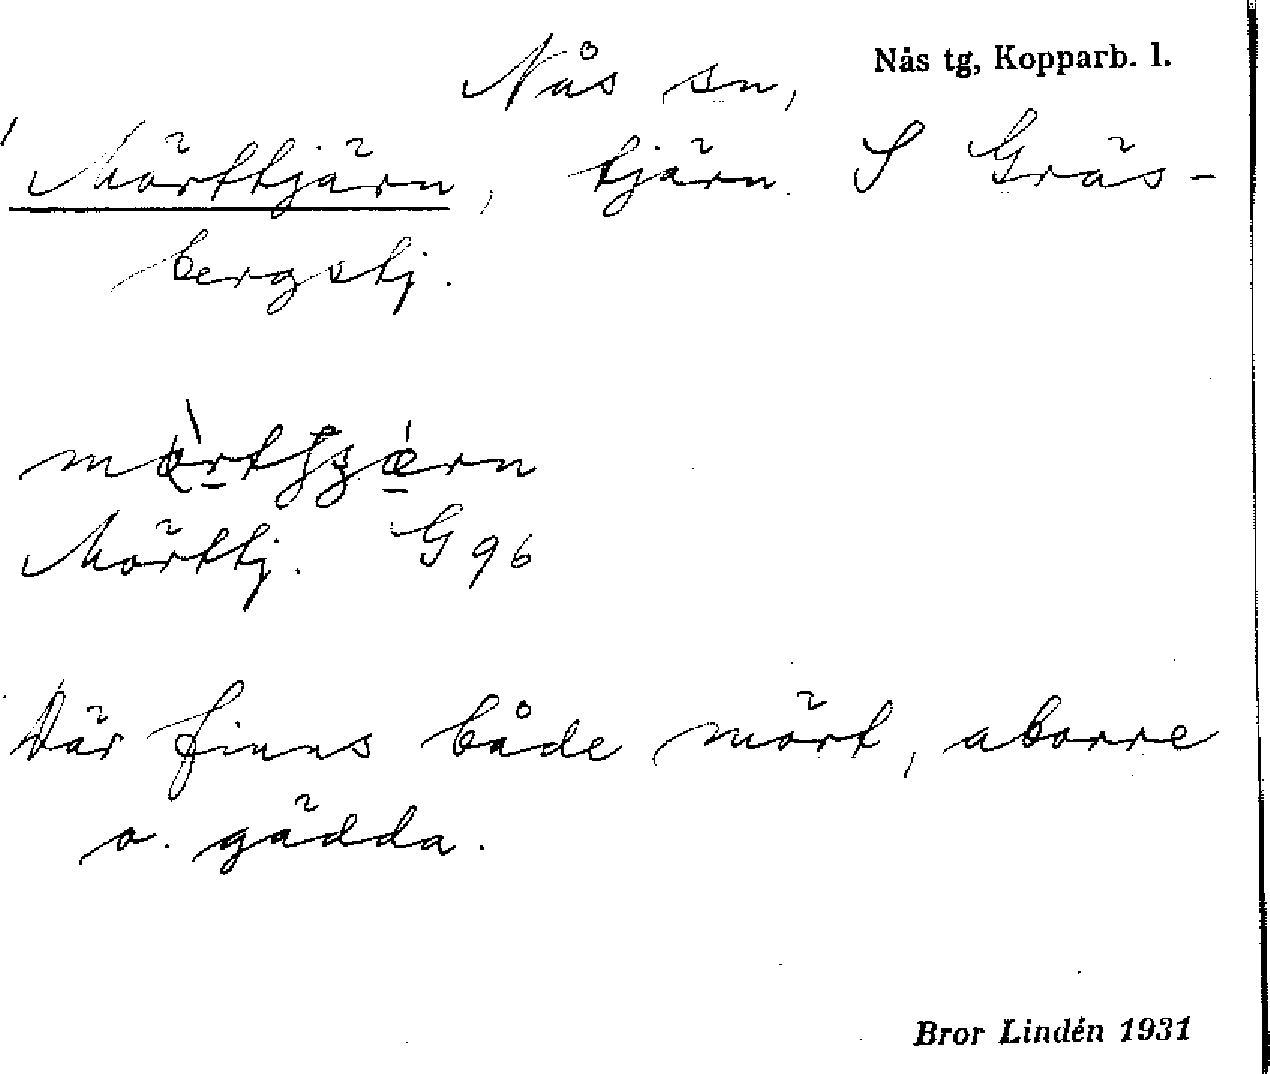 Nås sn, Nås tg, Kopparb. l.
Mörttjärn, tjärn. S Gräs-
bergstj.
Mörttj. G 96
Där finns både mört, aborre
o. gädda.
Bror Lindén 1931